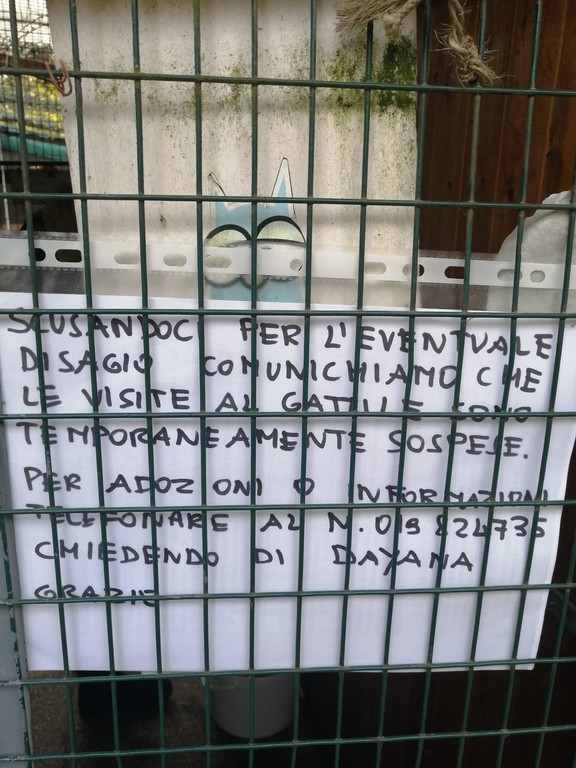 SCUSANDOCI PER L'EVENTUALE
DISAGIO COMUNICHIAMO CHE
LE VISITE AL GATTILE SONO
TEMPORANEAMENTE SOSPESE.
PER ADOZIONI O INFORMAZIONI
TELEFONARE AL N. 019 824735
CHIEDENDO DI DAYANA
GRAZIE